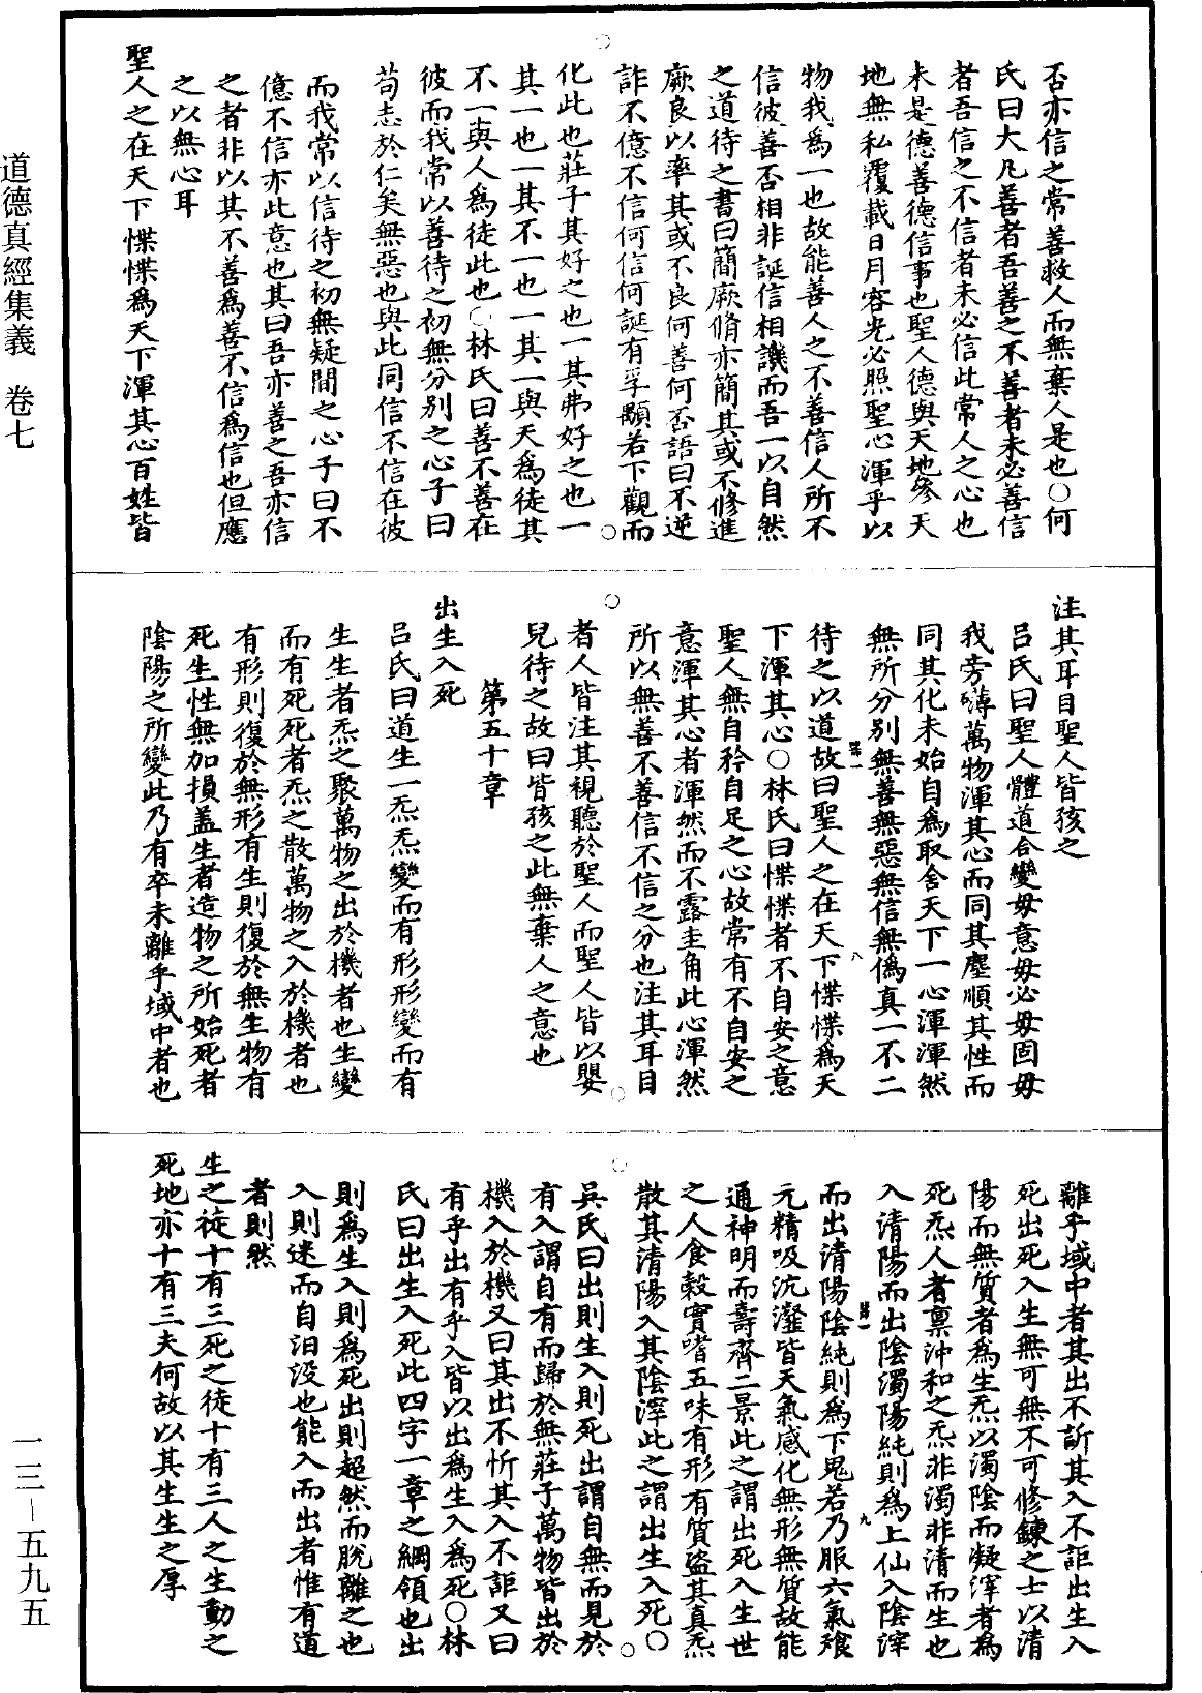 否亦信之常善救人而無棄人是也○何
氏曰大凡善者吾善之不善者未必善信
者吾信之不信者未必信此常人之心也
未是德善德信事也聖人德與天地參天
地無私覆載日月容光必照聖心渾乎以
物我爲一也故能善人之不善信人所不
信彼善否相非誕信相譏而吾一以自然
之道待之書曰簡厥脩亦簡其或不修進
厥良以率其或不良何善何否語曰不逆
詐不億不信何信何誕有孚顒若下觀而
化此也莊子其好之也一其弗好之也一
其一也一其不一也一其一與天爲徒其
不一與人爲徒此也○林氏曰善不善在
彼而我常以善待之初無分別之心子曰
苟志於仁矣無惡也與此同信不信在彼
而我常以信待之初無疑間之心子曰不
億不信亦此意也其曰吾亦善之吾亦信
之者非以其不善爲善不信爲信也但應
之以無心耳
聖人之在天下惵惵爲天下渾其心百姓皆
注其耳目聖人皆孩之
呂氏曰聖人體道合變毋意毋必毋固毋
我旁礴萬物渾其心而同其塵順其性而
同其化未始自爲取舍天下一心渾渾然
無所分別無善無惡無信無僞真一不二
待之以道故曰聖人之在天下惵惵爲天
下渾其心○林氏曰惵惵者不自安之意
聖人無自矜自足之心故常有不自安之
意渾其心者渾然而不露圭角此心渾然
所以無善不善信不信之分也注其耳目
者人皆注其視聽於聖人而聖人皆以嬰
兒待之故曰皆孩之此無棄人之意也
第五十章
出生入死
呂氏曰道生一炁炁變而有形形變而有
生生者炁之聚萬物之出於機者也生變
而有死死者炁之散萬物之入於機者也
有形則復於無形有生則復於無生物有
死生性無加損蓋生者造物之所始死者
陰陽之所變此乃有卒未離乎域中者也
離乎域中者其出不訢其入不詎出生入
死出死入生無可無不可修鍊之士以清
陽而無質者爲生炁以濁陰而凝滓者爲
死炁人者稟沖和之炁非濁非清而生也
入清陽而出陰濁陽純則爲上仙入陰滓
而出清陽陰純則爲下鬼若乃服六氣飡
元精吸沆瀣皆天氣感化無形無質故能
通神明而壽齊二景此之謂出死入生世
之人食穀實嗜五味有形有質盜其真炁
散其清陽入其陰滓此之謂出生入死○
吳氏曰出則生入則死出謂自無而見於
有入謂自有而歸於無莊子萬物皆出於
機入於機又曰其出不忻其入不詎又曰
有乎出有乎入皆以出爲生入爲死○林
氏曰出生入死此四字一章之綱領也出
則爲生入則爲死出則超然而脫離之也
入則迷而自汨没也能入而出者惟有道
者則然
生之徒十有三死之徒十有三人之生動之
死地亦十有三夫何故以其生生之厚
道德真經集義　卷七
一三－五九五